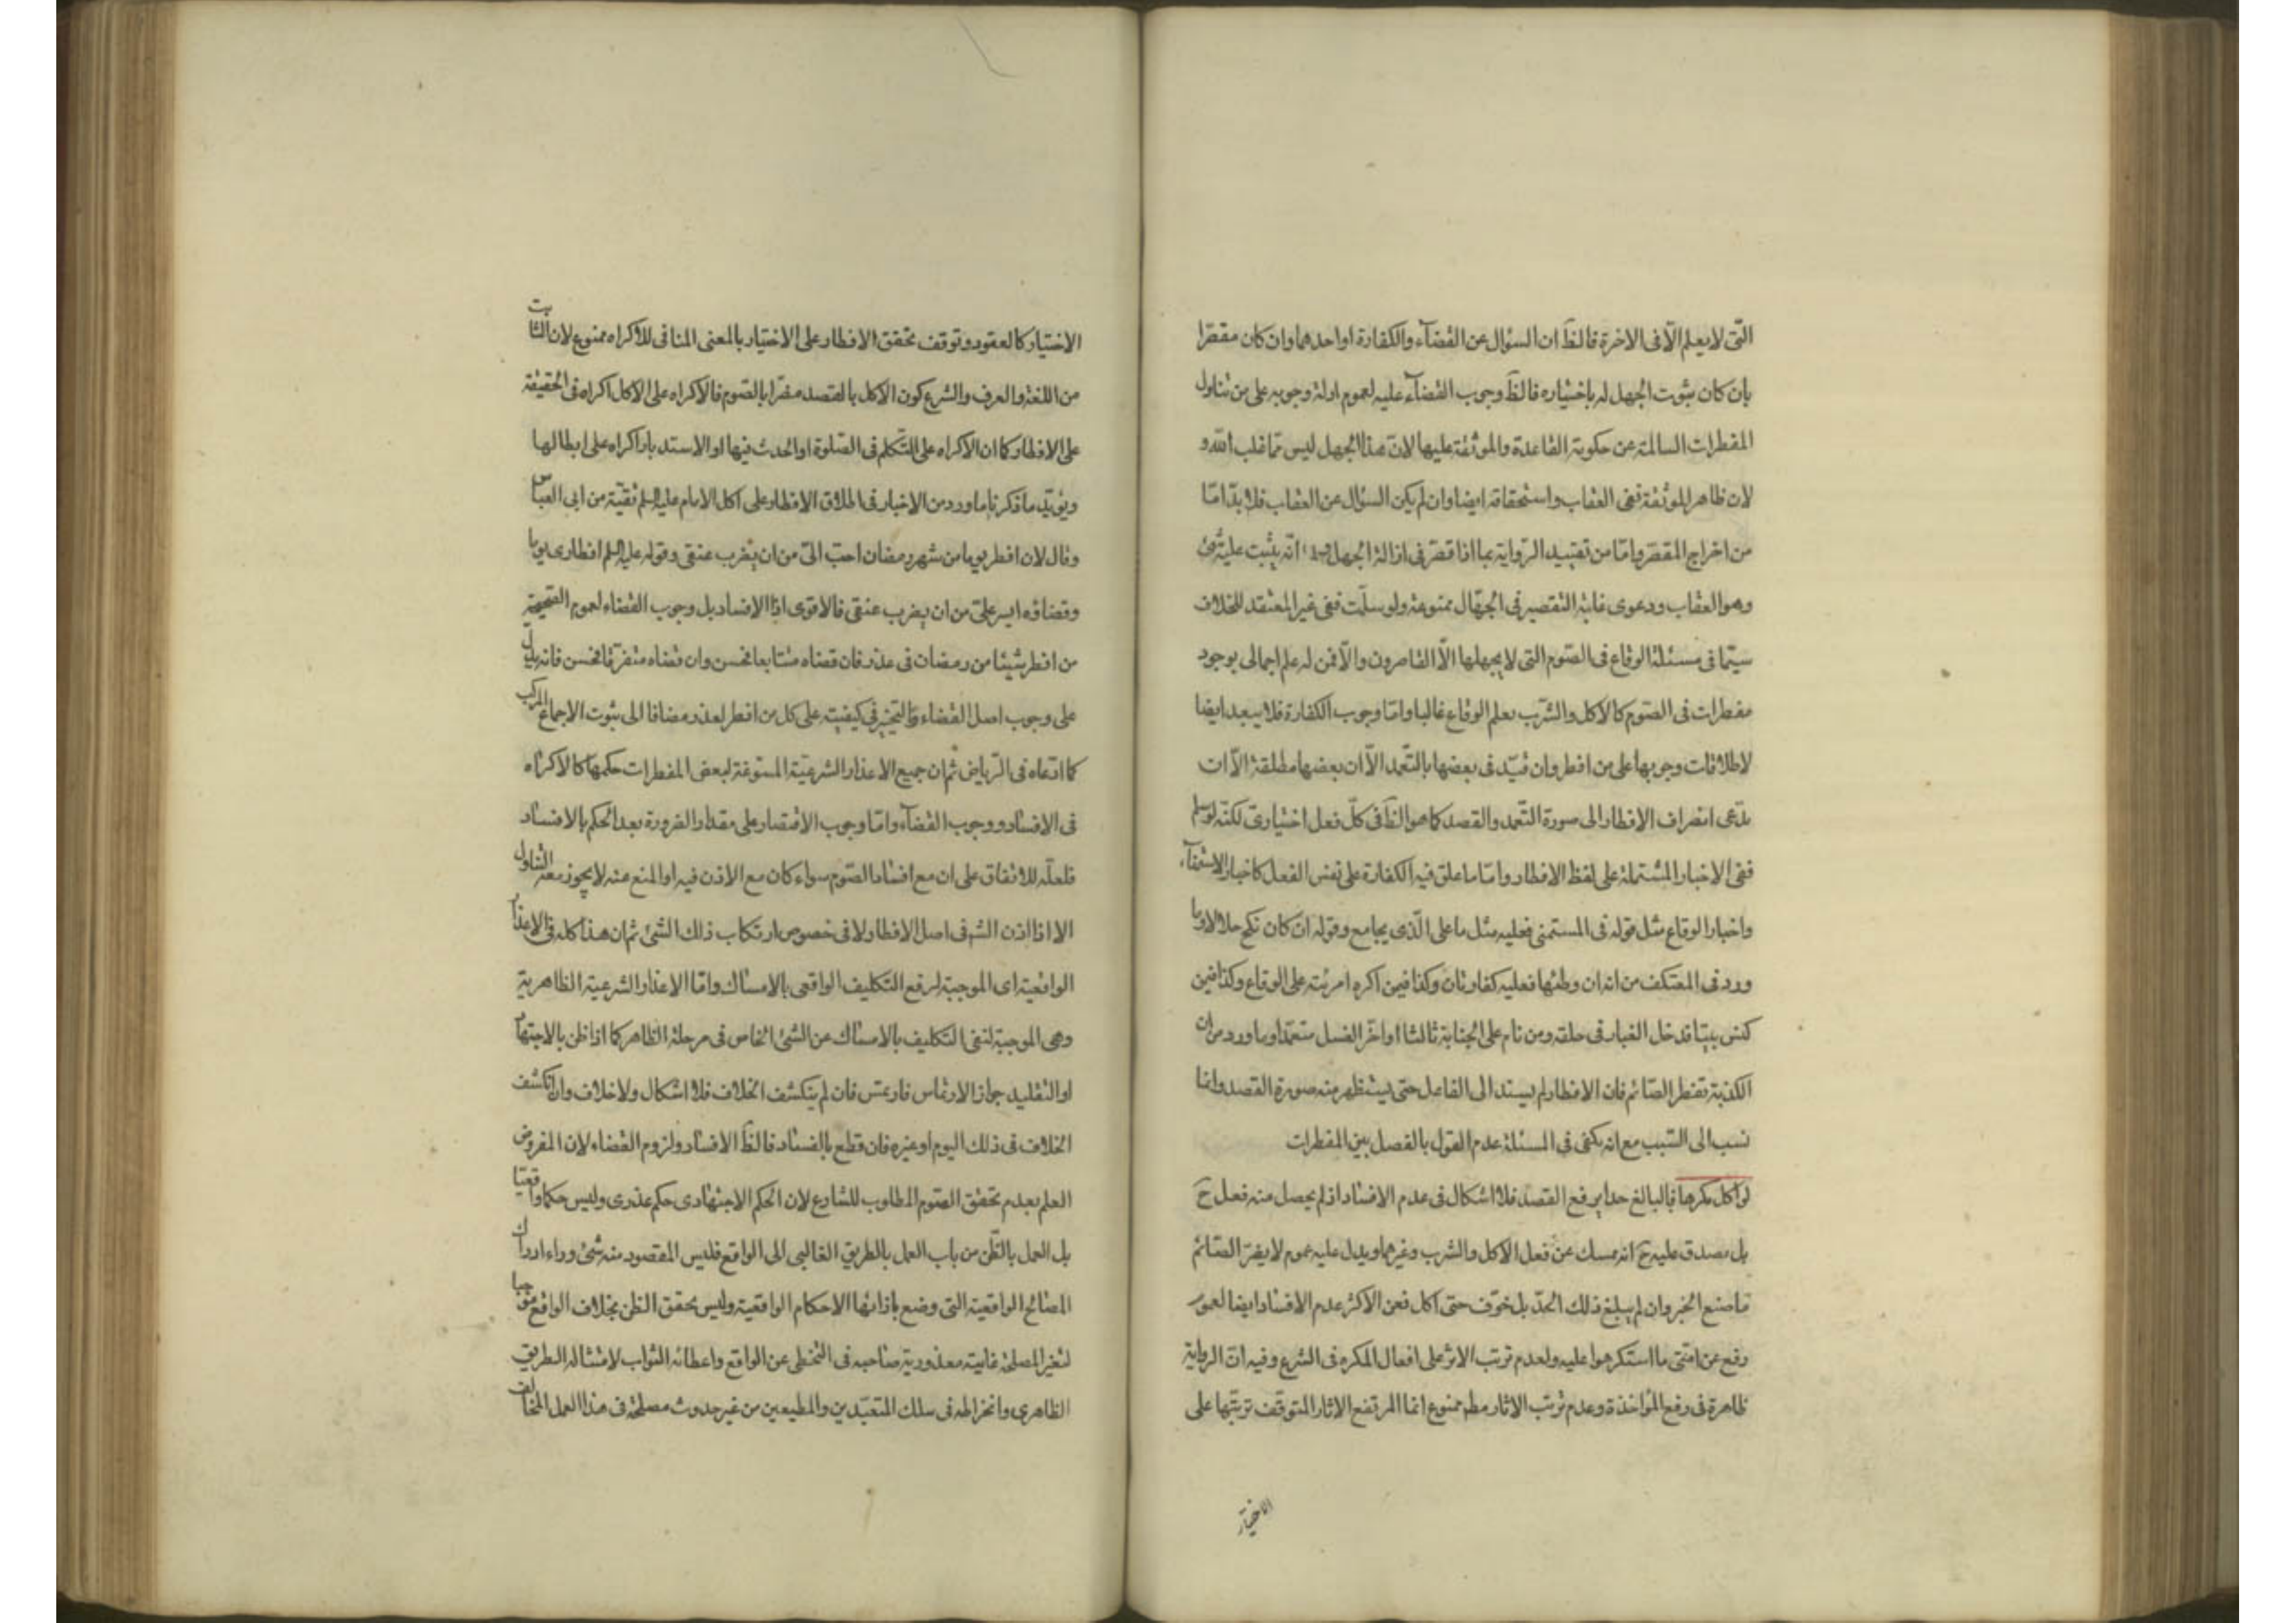 التّى لا يعلم الّا فى الاخرة فالظَ ان السؤال عن القضآء والكفارة او احدهما وان كان مقصّرا
بان كان ثبوت الجهل له باختياره فالظَ وجوب القضآء عليه لعموم ادلة وجوبه على من تناول
المفطرات السالمة عن حكومة القاعدة والموثقة عليها لانّ هذا الجهل ليس ممّا غلب الله و
لان ظاهر الموثقة نفى العقاب واستحقاقه ايضا وان لم يكن السؤال عن العقاب فلا بدّ امّا
من اخراج المقصّر وامّا من تقييد الرّواية بما اذا قصّر فى ازالة الجهل انّه يثبت عليه شئ
وهو العقاب ودعوى غلبة التقصير فى الجهّال ممنوعة ولو سلّمت ففى غير المعتقد للخلاف
سيّما فى مسئلة الوقاع فى الصّوم التى لا يجهلها الّا القاصرون والّا فمن له علم اجمالى بوجود
مفطرات فى الصّوم كالاكل والشّرب يعلم الوقاع غالبا وامّا وجوب الكفارة فلا يبعد ايضا
لاطلاقات وجوبها على من افطر وان قيّد فى بعضها بالتّعمد الّا ان بعضها مطلقة الّا ان
يدّعى انصراف الافطار الى صورة التّعمد والقصد كما هو الظَ فى كلّ فعل اختيارى لكنّه لو سلم
ففى الاخبار المشتملة على لفظ الافطار وامّا ما علق فيه الكفارة على نفس الفعل كاخبار الاستمناء
واخبار الوقاع مثل قوله فى المستمنى فعليه مثل ما على الّذى يجامع وقوله ان كان نكح حلالا وما
ورد فى المعتكف من انه ان وطئها فعليه كفارتان وكذا فيمن اكره امرئته على الوقاع وكذا فيمن
كنس بيتا فدخل الغبار فى حلقه ومن نام على الجنابة ثالثا او اخّر الغسل متعمّدا وما ورد من ان
الكذبة تفطر الصّائم فان الافطار لم يسند الى الفاعل حتى يستظهر منه صورة القصد وانما
نسب الى السّبب مع انه يكفى فى المسئلة عدم القول بالفصل بين المفطرات
لو اكل مكرها فالبالغ حدا يرفع القصد فلا اشكال فى عدم الافساد اذ لم يحصل منه فعل حَ
بل يصدق عليه حَ انه ممسك عن فعل الاكل والشرب وغيرهما ويدل عليه عموم لا يضرّ الصّائم
ما صنع الخبر وان لم يبلغ ذلك الحدّ بل خوّف حتى اكل فعن الاكثر عدم الافساد ايضا لعموم
رفع عن امّتى ما استكرهوا عليه ولعدم ترتب الاثر على افعال المكره فى الشرع وفيه انّ الرواية
ظاهرة فى رفع المؤاخذة وعدم ترتّب الاثار مطم ممنوع انما المرتفع الاثار المتوقف ترتبّها على
الاختيار
الاختيار كالعقود وتوقف تحقق الافطار على الاختيار بالمعنى المنافى للاكراه ممنوع لان الثابت
من اللغة والعرف والشرع كون الاكل بالقصد مضرّا بالصّوم فالاكراه على الاكل اكراه فى الحقيقة
على الافطار كما ان الاكراه على التّكلم فى الصّلوة او الحدث فيها او الاستدبار اكراه على ابطالها
ويؤيّد ما ذكرنا ما ورد من الاخبار فى اطلاق الافطار على اكل الامام عليه السلم تقيّة من ابى العبّاس
وقال لان افطر يوما من شهر رمضان احبّ الىّ من ان يضرب عنقى وقوله عليه السلم افطارى يوما
وقضاؤه ايسر علىّ من ان يضرب عنقى فالاقوى اذا الافساد بل وجوب القضاء لعموم الصّحيحة
من افطر شيئا من رمضان فى عذر فان قضاه متتابعا فحسن وان قضاه متفرّقا فحسن فانه يدل
على وجوب اصل القضاء والتخيير فى كيفيته على كل من افطر لعذر مضافا الى ثبوت الاجماع المركب
كما ادّعاه فى الرّياض ثم ان جميع الاعذار الشرعيّة المسّوغة لبعض المفطرات حكمها كالاكراه
فى الافساد ووجوب القضآء وامّا وجوب الاقتصار على مقدار الضرورة بعد الحكم بالافساد
فلعلّه للاتفاق على ان مع افساد الصّوم سواء كان مع الاذن فيه او المنع منه لا يجوز معه التناول
الا اذا اذن الشرفى اصل الافطار لا فى خصوص ارتكاب ذلك الشئ ثم ان هذا كله فى الاعذار
الواقعية اى الموجبة لرفع التكليف الواقعى بالامساك وامّا الاعذار الشرعيّة الظاهرية
وهى الموجبة لنفى التكليف بالامساك عن الشئ الخاص فى مرحلة الظاهر كما اذا ظن بالاجتهاد
او التقليد جواز الارتماس فارتمس فان لم ينكشف الخلاف فلا اشكال ولا خلاف وان انكشف
الخلاف فى ذلك اليوم او غيره فان قطع بالفساد فالظَ الافساد ولزوم القضاء لان المفروض
العلم بعدم تحقق الصّوم المطلوب للشارع لان الحكم الاجتهادى حكم عذرى وليس حكما واقعيّا
بل العمل بالظّن من باب العمل بالطريق الغالبى الى الواقع فليس المقصود منه شئ وراء ادراك
المصالح الواقعية التى وضع بازائها الاحكام الواقعية وليس تحقق الظن بخلاف الواقع موجبا
لتغير المصلحة غايته معذورية صاحبه فى التخطى عن الواقع واعطائه الثواب لامتثاله الطريق
الظاهرى وانخراطه فى سلك المتعبّدين والمطيعين من غير حدوث مصلحة فى هذا العمل المخالف